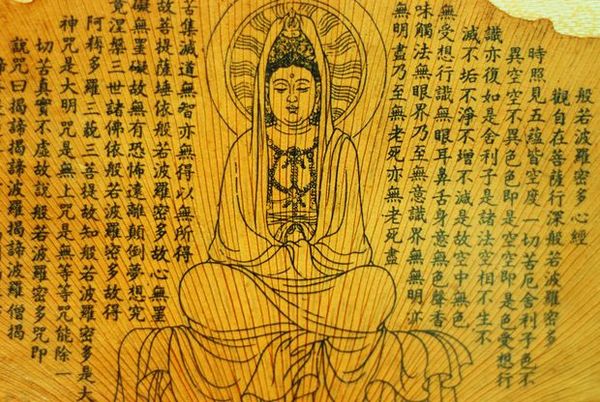 般若波羅密多心經
觀自在菩薩行深般若波羅密多
時照見五蘊皆空度一切苦厄舍利子色不
異空空不異色色即是空空即是色受想行
識亦復如是舍利子是諸法空相不生不
滅不垢不淨不增不減是故空中無色
無受想行識無眼耳鼻舌身意無色聲香
味觸法無眼界乃至無意識界無無明亦
無明盡乃至無老死亦無老死盡
苦集滅道無智亦無得以無所得
故菩提薩埵依般若波羅密多故心無罣
礙無罣礙故無有恐怖遠離顛倒夢想究
竟涅槃三世諸佛依般若波羅密多故得
阿耨多羅三藐三菩提故知般若波羅密多是大
神咒是大明咒是無上咒是無等等咒能除一
切苦真實不虛故說般若波羅密多咒即
說咒曰揭諦揭諦波羅揭諦波羅僧揭